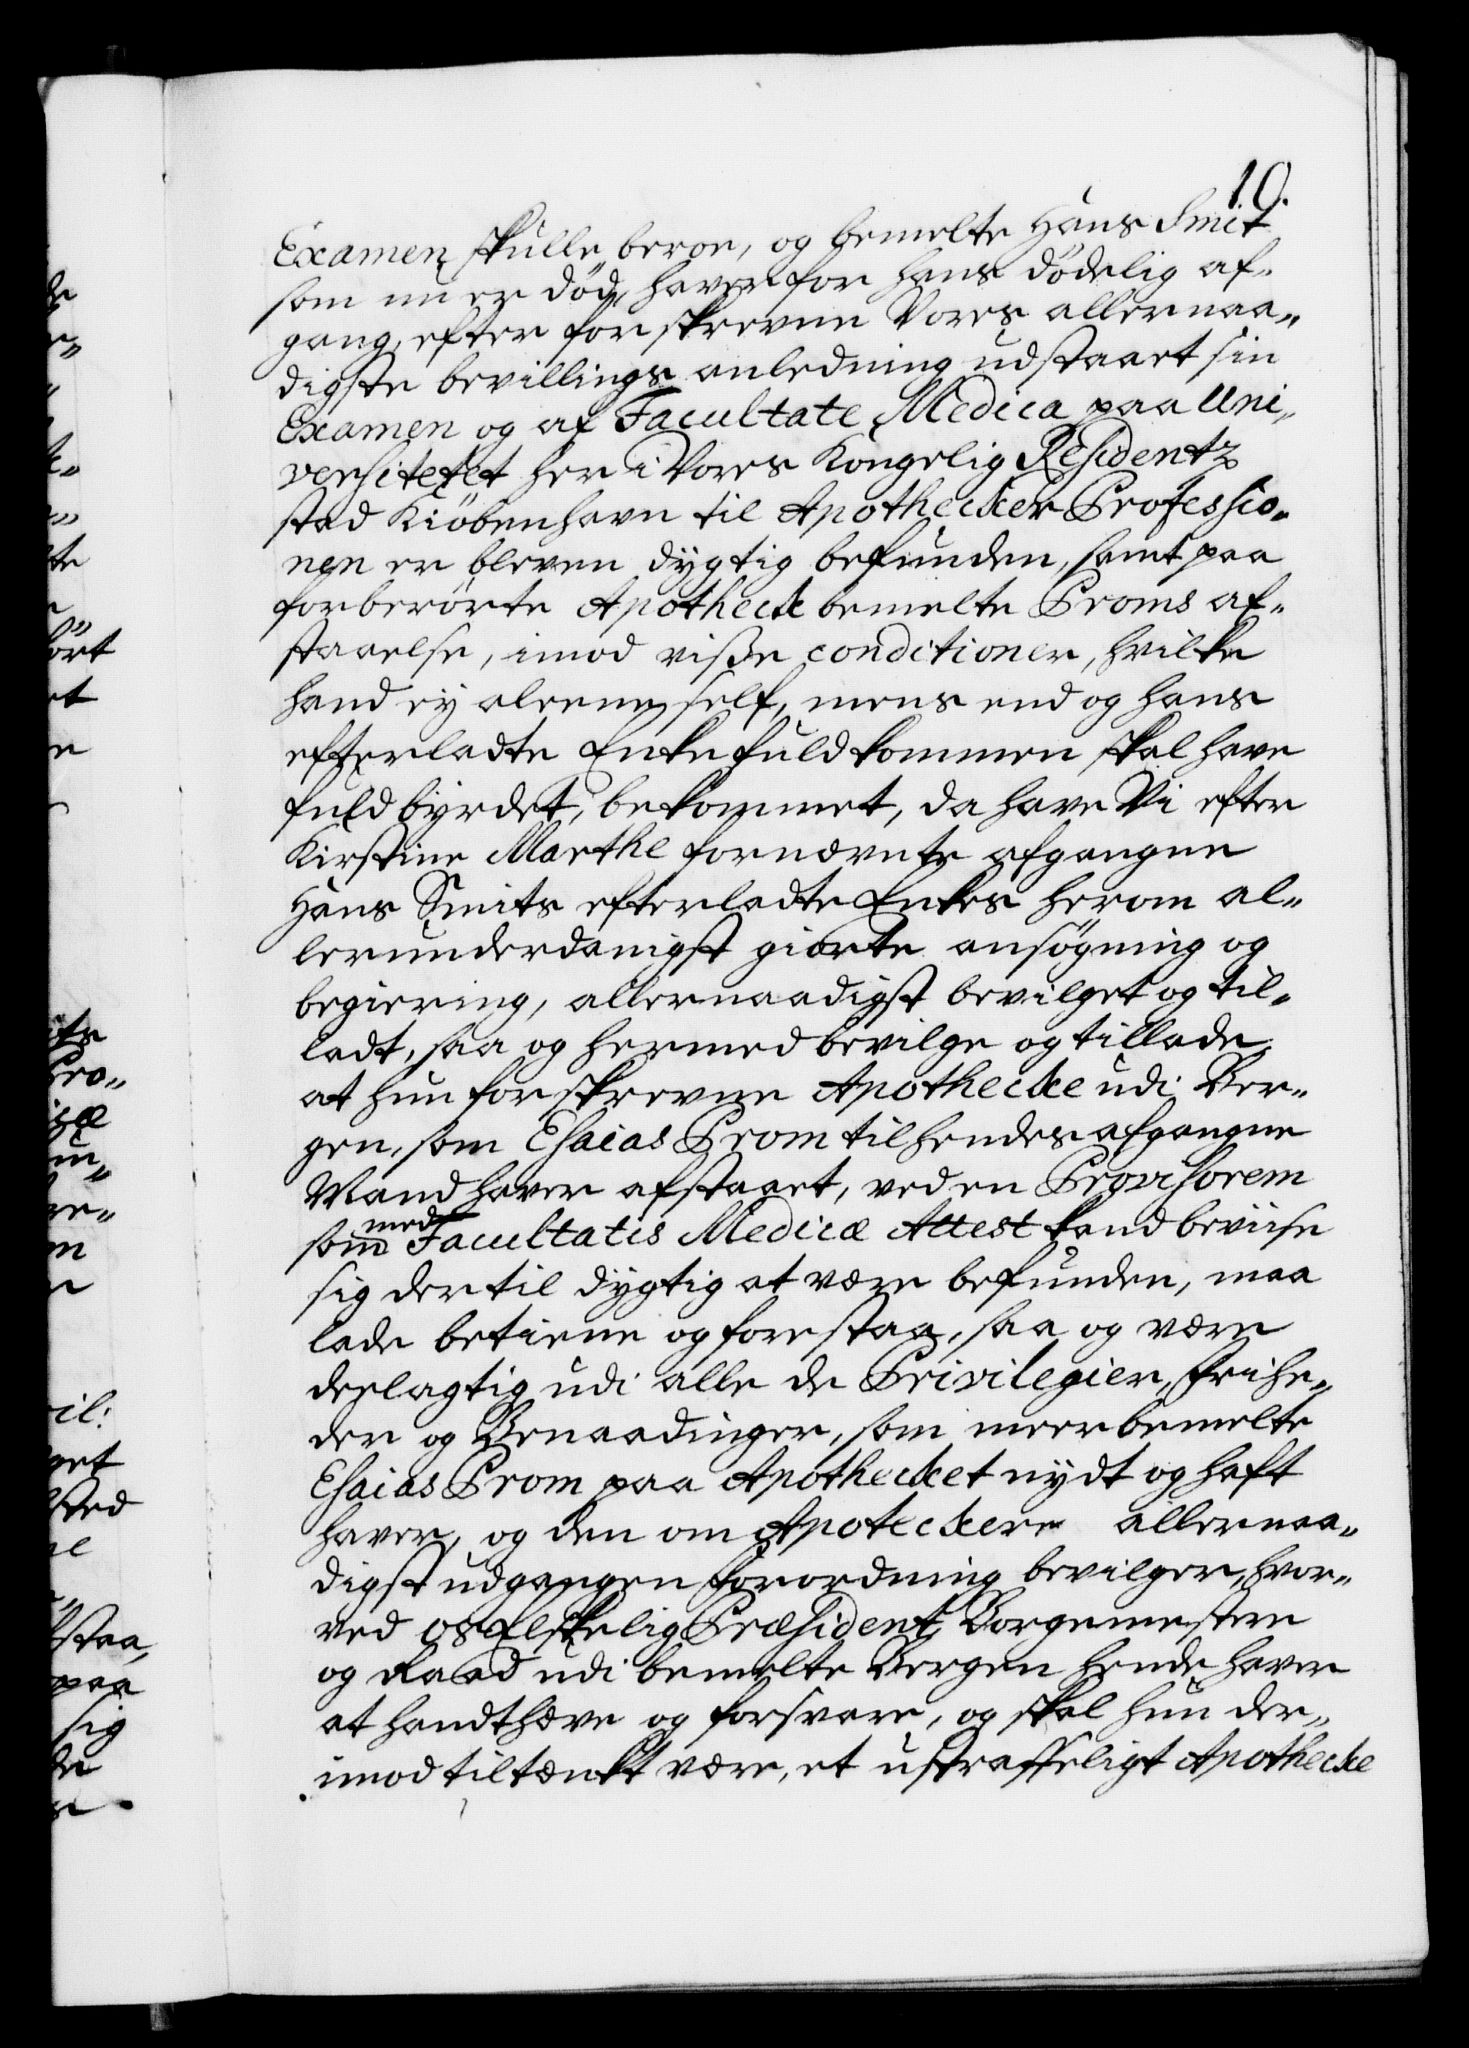 10.
Examen skulle beroe, og bemelte Hans Smit
som nu er død, haver for hans dødelig af-
gang, efter forskrevne Vores allernaa-
digste bevillings anledning udstaaet sin
Examen og af Facultate Medica paa Uni-
versitetet her i Vores Kongelig Residentz
stad Kiøbenhavn til Apothecker Professio-
nen er bleven dygtig befunden, samt paa
forberørte Apotheck bemelte Proms af-
staaelse, imod visse conditioner, hvilke
hand ey aleene self, mens end og hans
efterladte Enke fuldkommen skal have
fuldbyrdet, bekommet, da have Vi efter
Kirstine Marthe fornævnte afgangne
Hans Smits efterladte Enkes herom al-
lerunderdanigst giorte ansøgning og
begiering, allernaadigst bevilget og til-
ladt, saa og hermed bevilge og tillade,
at hun forskrevne Apothecke udi Ber-
gen, som Esaias Prom til hendes afgangne
Mand haver afstaaet, ved en Provisorem
som med Facultatis Medicæ Attest kand beviise
sig dertil dygtig at være befunden, maa
lade betiene og forestaa, saa og være
deelagtig udi alle de Privilegier, frihe-
der og Benaadinger, som meerbemelte
Esaias Prom paa Apothecket nydt og haft
haver, og den om Apoteckere allernaa-
digst udgangen forordning bevilger, hvor-
ved os Elskelig Præsident, Borgemestere
og Raad udi bemelte Bergen hende haver
at handthæve og forsvare, og skal hun der-
imod tiltænkt være, et ustraffeligt Apothecke